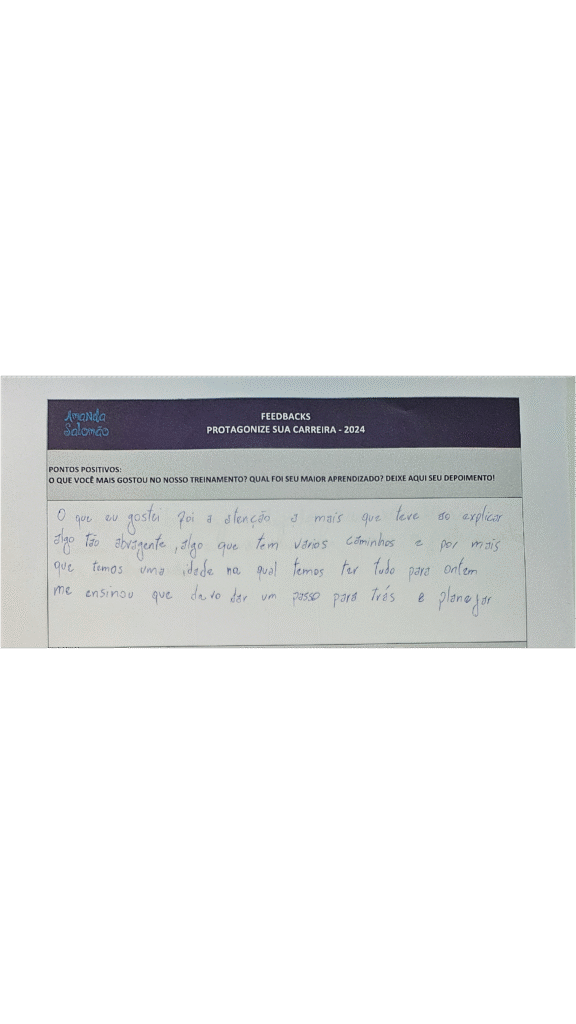 Amanda
Salomão
FEEDBACKS
PROTAGONIZE SUA CARREIRA - 2024
PONTOS POSITIVOS:
O QUE VOCÊ MAIS GOSTOU NO NOSSO TREINAMENTO? QUAL FOI SEU MAIOR APRENDIZADO? DEIXE AQUI SEU DEPOIMENTO!
O que eu gostei foi a atenção a mais que teve ao explicar
algo tão abragente, algo que tem varios caminhos e por mais
que temos uma idade na qual temos ter tudo para ontem
me ensinou que devo dar um passo para trés e planejar